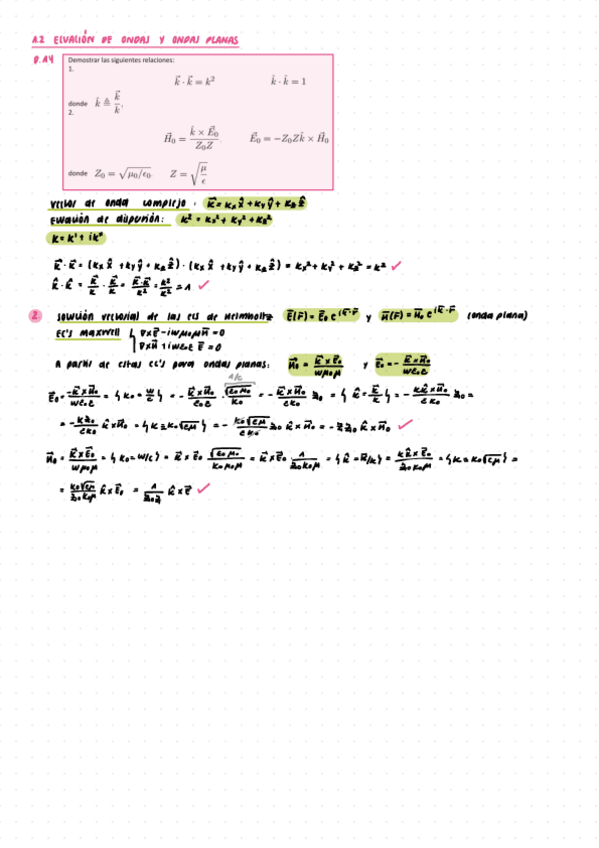 1.2 ECUACIÓN DE ONDAS Y ONDAS PLANAS
D.A4
Demostrar las siguientes relaciones:
1.
k⃗ · k⃗ = k² k̂ · k̂ = 1
donde k̂ ≜ k⃗/k.
2.
H⃗₀ = (k̂ × E⃗₀)/(Z₀Z) E⃗₀ = −Z₀Z k̂ × H⃗₀
donde Z₀ = √(μ₀/ε₀) Z = √(μ/ε)
vector de onda complejo. k⃗ = kₓx̂ + k_yŷ + k_zẑ
Ecuación de dispersión: k² = kₓ² + k_y² + k_z²
k = k' + ik"
k⃗ · k⃗ = (kₓx̂ + k_yŷ + k_zẑ) · (kₓx̂ + k_yŷ + k_zẑ) = kₓ² + k_y² + k_z² = k² ✓
k̂ · k̂ = k⃗/k · k⃗/k = (k⃗·k⃗)/k² = k²/k² = 1 ✓
2 solución vectorial de las ecs de Helmholtz E⃗(r⃗) = E⃗₀ e^(ik⃗·r⃗) y H⃗(r⃗) = H⃗₀ e^(ik⃗·r⃗) (onda plana)
EC's Maxwell { ∇×E⃗ − iωμ₀μH⃗ = 0
∇×H⃗ + iωε₀ε E⃗ = 0
A partir de estas ec's para ondas planas: H⃗₀ = (k⃗×E⃗₀)/(ωμ₀μ) y E⃗₀ = −(k⃗×H⃗₀)/(ωε₀ε)
1/c
E⃗₀ = (−k⃗×H⃗₀)/(ωε₀ε) = {k₀ = ω/c} = −(k⃗×H⃗₀)/(ε₀ε) · √(ε₀μ₀)/k₀ = −(k⃗×H⃗₀)/(εk₀) Z₀ = {k̂ = k⃗/k} = −(k k̂×H⃗₀)/(εk₀) Z₀ =
= −(kZ₀)/(εk₀) k̂×H⃗₀ = {k = k₀√(εμ)} = −(k₀√(εμ))/(εk₀) Z₀ k̂×H⃗₀ = −ZZ₀ k̂×H⃗₀ ✓
H⃗₀ = (k⃗×E⃗₀)/(ωμ₀μ) = {k₀ = ω/c} = k⃗×E⃗₀ √(ε₀μ₀)/(k₀μ₀μ) = k⃗×E⃗₀ 1/(Z₀k₀μ) = {k̂ = k⃗/k} = (k k̂×E⃗₀)/(Z₀k₀μ) = {k = k₀√(εμ)} =
= (k₀√(εμ))/(Z₀k₀μ) k̂×E⃗₀ = 1/(Z₀Z) k̂×E⃗ ✓